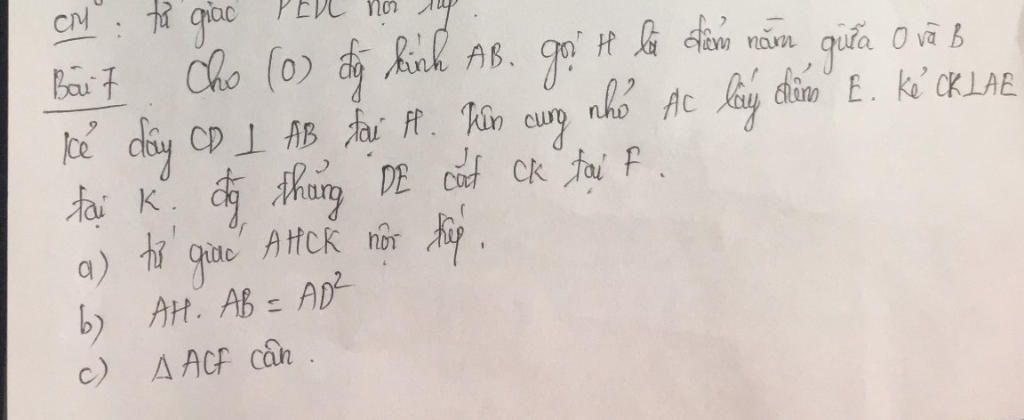 CM: tứ giác PEDC nội tiếp.
Bài 7. Cho (O) đg kính AB. gọi H là điểm nằm giữa O và B
Kẻ dây CD ⊥ AB tại H. Trên cung nhỏ AC lấy điểm E. Kẻ CK⊥AE
tại K. đg thẳng DE cắt CK tại F.
a) tứ giác AHCK nội tiếp.
b) AH. AB = AD²
c) Δ ACF cân.